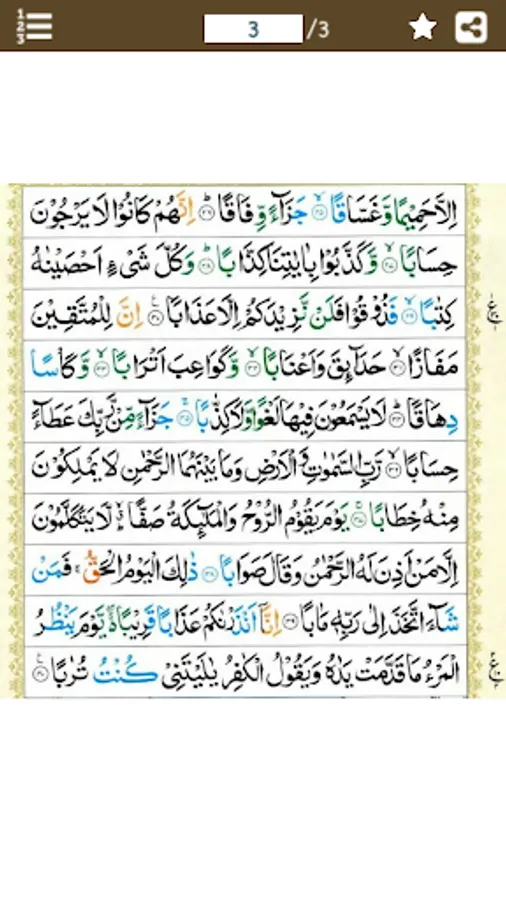 3 /3
اِلَّا حَمِيْمًا وَّغَسَّاقًا ۙ﴿۲۵﴾ جَزَآءً وِّفَاقًا ؕ﴿۲۶﴾ اِنَّهُمْ كَانُوْا لَا يَرْجُوْنَ
حِسَابًا ۙ﴿۲۷﴾ وَّكَذَّبُوْا بِاٰيٰتِنَا كِذَّابًا ؕ﴿۲۸﴾ وَكُلَّ شَیْءٍ اَحْصَيْنٰهُ
كِتٰبًا ۙ﴿۲۹﴾ فَذُوْقُوْا فَلَنْ نَّزِيْدَكُمْ اِلَّا عَذَابًا ﴿۳۰﴾ اِنَّ لِلْمُتَّقِيْنَ
مَفَازًا ۙ﴿۳۱﴾ حَدَآئِقَ وَاَعْنَابًا ۙ﴿۳۲﴾ وَّكَوَاعِبَ اَتْرَابًا ۙ﴿۳۳﴾ وَّكَاْسًا
دِهَاقًا ؕ﴿۳۴﴾ لَا يَسْمَعُوْنَ فِيْهَا لَغْوًا وَّلَا كِذّٰبًا ۚ﴿۳۵﴾ جَزَآءً مِّنْ رَّبِّكَ عَطَآءً
حِسَابًا ۙ﴿۳۶﴾ رَّبِّ السَّمٰوٰتِ وَالْاَرْضِ وَمَا بَيْنَهُمَا الرَّحْمٰنِ لَا يَمْلِكُوْنَ
مِنْهُ خِطَابًا ۚ﴿۳۷﴾ يَوْمَ يَقُوْمُ الرُّوْحُ وَالْمَلٰٓئِكَةُ صَفًّا ۙؕ لَّا يَتَكَلَّمُوْنَ
اِلَّا مَنْ اَذِنَ لَهُ الرَّحْمٰنُ وَقَالَ صَوَابًا ﴿۳۸﴾ ذٰلِكَ الْيَوْمُ الْحَقُّ ۚ فَمَنْ
شَآءَ اتَّخَذَ اِلٰى رَبِّهٖ مَاٰبًا ﴿۳۹﴾ اِنَّاۤ اَنْذَرْنٰكُمْ عَذَابًا قَرِيْبًا ۖۚ يَّوْمَ يَنْظُرُ
الْمَرْءُ مَا قَدَّمَتْ يَدٰهُ وَيَقُوْلُ الْكٰفِرُ يٰلَيْتَنِیْ كُنْتُ تُرٰبًا ﴿۴۰﴾